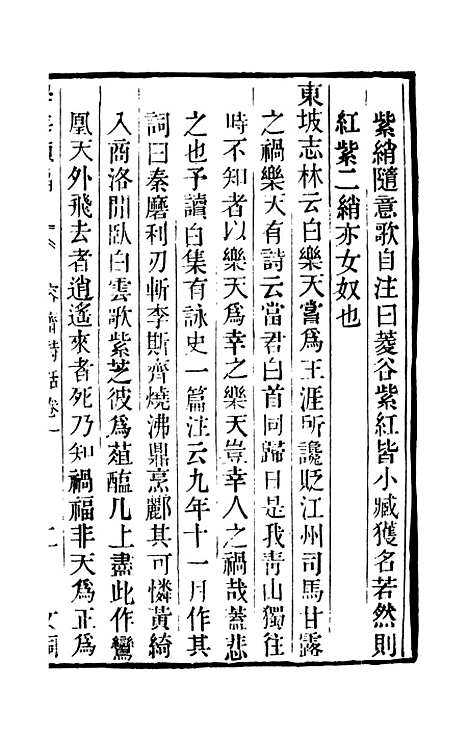 紫綃隨意歌自注曰菱谷紫紅皆小臧獲名若然則
紅紫二綃亦女奴也
東坡志林云白樂天嘗爲王涯所讒貶江州司馬甘露
之禍樂天有詩云當君白首同歸日是我靑山獨往
時不知者以樂天爲幸之樂天豈幸人之禍哉蓋悲
之也予讀白集有詠史一篇注云九年十一月作其
詞曰秦磨利刃斬李斯齊燒沸鼎烹酈其可憐黃綺
入商洛閒臥白雲歌紫芝彼爲葅醢几上盡此作鸞
凰天外飛去者逍遙來者死乃知禍福非天爲正爲
容齋詩話卷一